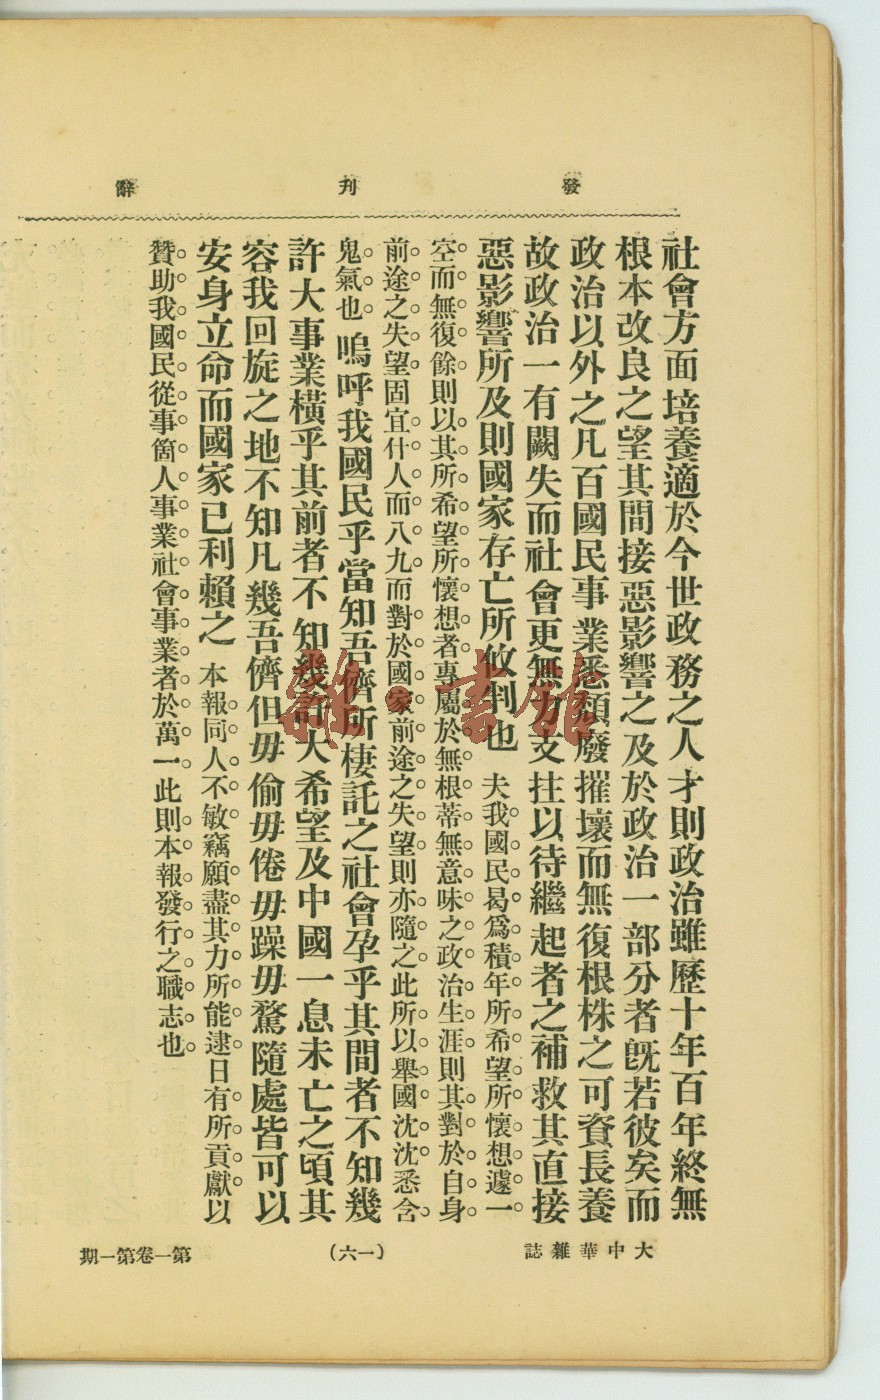 發刊辭
社會方面培養適於今世政務之人才則政治雖歷十年百年終無
根本改良之望其間接惡影響之及於政治一部分者旣若彼矣而
政治以外之凡百國民事業悉頹廢摧壞而無復根株之可資長養
故政治一有闕失而社會更無力支拄以待繼起者之補救其直接
惡影響所及則國家存亡所攸判也夫我國民曷爲積年所希望所懷想遽一
空而無復餘則以其所希望所懷想者專屬於無根蒂無意味之政治生涯則其對於自身
前途之失望固宜什人而八九而對於國家前途之失望則亦隨之此所以舉國沈沈悉含
鬼氣也嗚呼我國民乎當知吾儕所棲託之社會孕乎其間者不知幾
許大事業橫乎其前者不知幾許大希望及中國一息未亡之頃其
容我回旋之地不知凡幾吾儕但毋偷毋倦毋躁毋驁隨處皆可以
安身立命而國家已利賴之本報同人不敏竊願盡其力所能逮日有所貢獻以
贊助我國民從事箇人事業社會事業者於萬一此則本報發行之職志也
大中華雜誌
(一六)
第一卷第一期
雜·書館